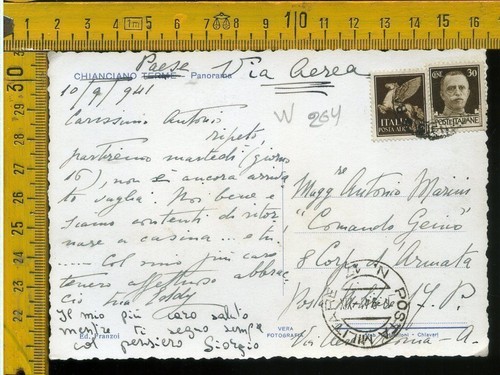 CHIANCIANO TERME - Panorama
Paese
Via Aerea
10/9/941
W 264
Carissimo Antonio
ripeto,
partiremo martedì (giorno
16), non è ancora arrivato
vaglia. Noi bene e
siamo contenti di ritor
nare a casina ... e tu
Col mio più caro
tenero affettuoso abbrac
cio tua
Il mio più caro saluto
mentre ti seguo sempre
col pensiero Giorgio
ITALIA
POSTA AEREA
CENT. 30
POSTE ITALIANE
Magg.re Antonio Marini
"Comando Genio"
8 Corpo d'Armata
Posta Militare
N. 7
POSTA MILITARE
Ed. Franzoi
VERA
FOTOGRAFIA
- Chiavari